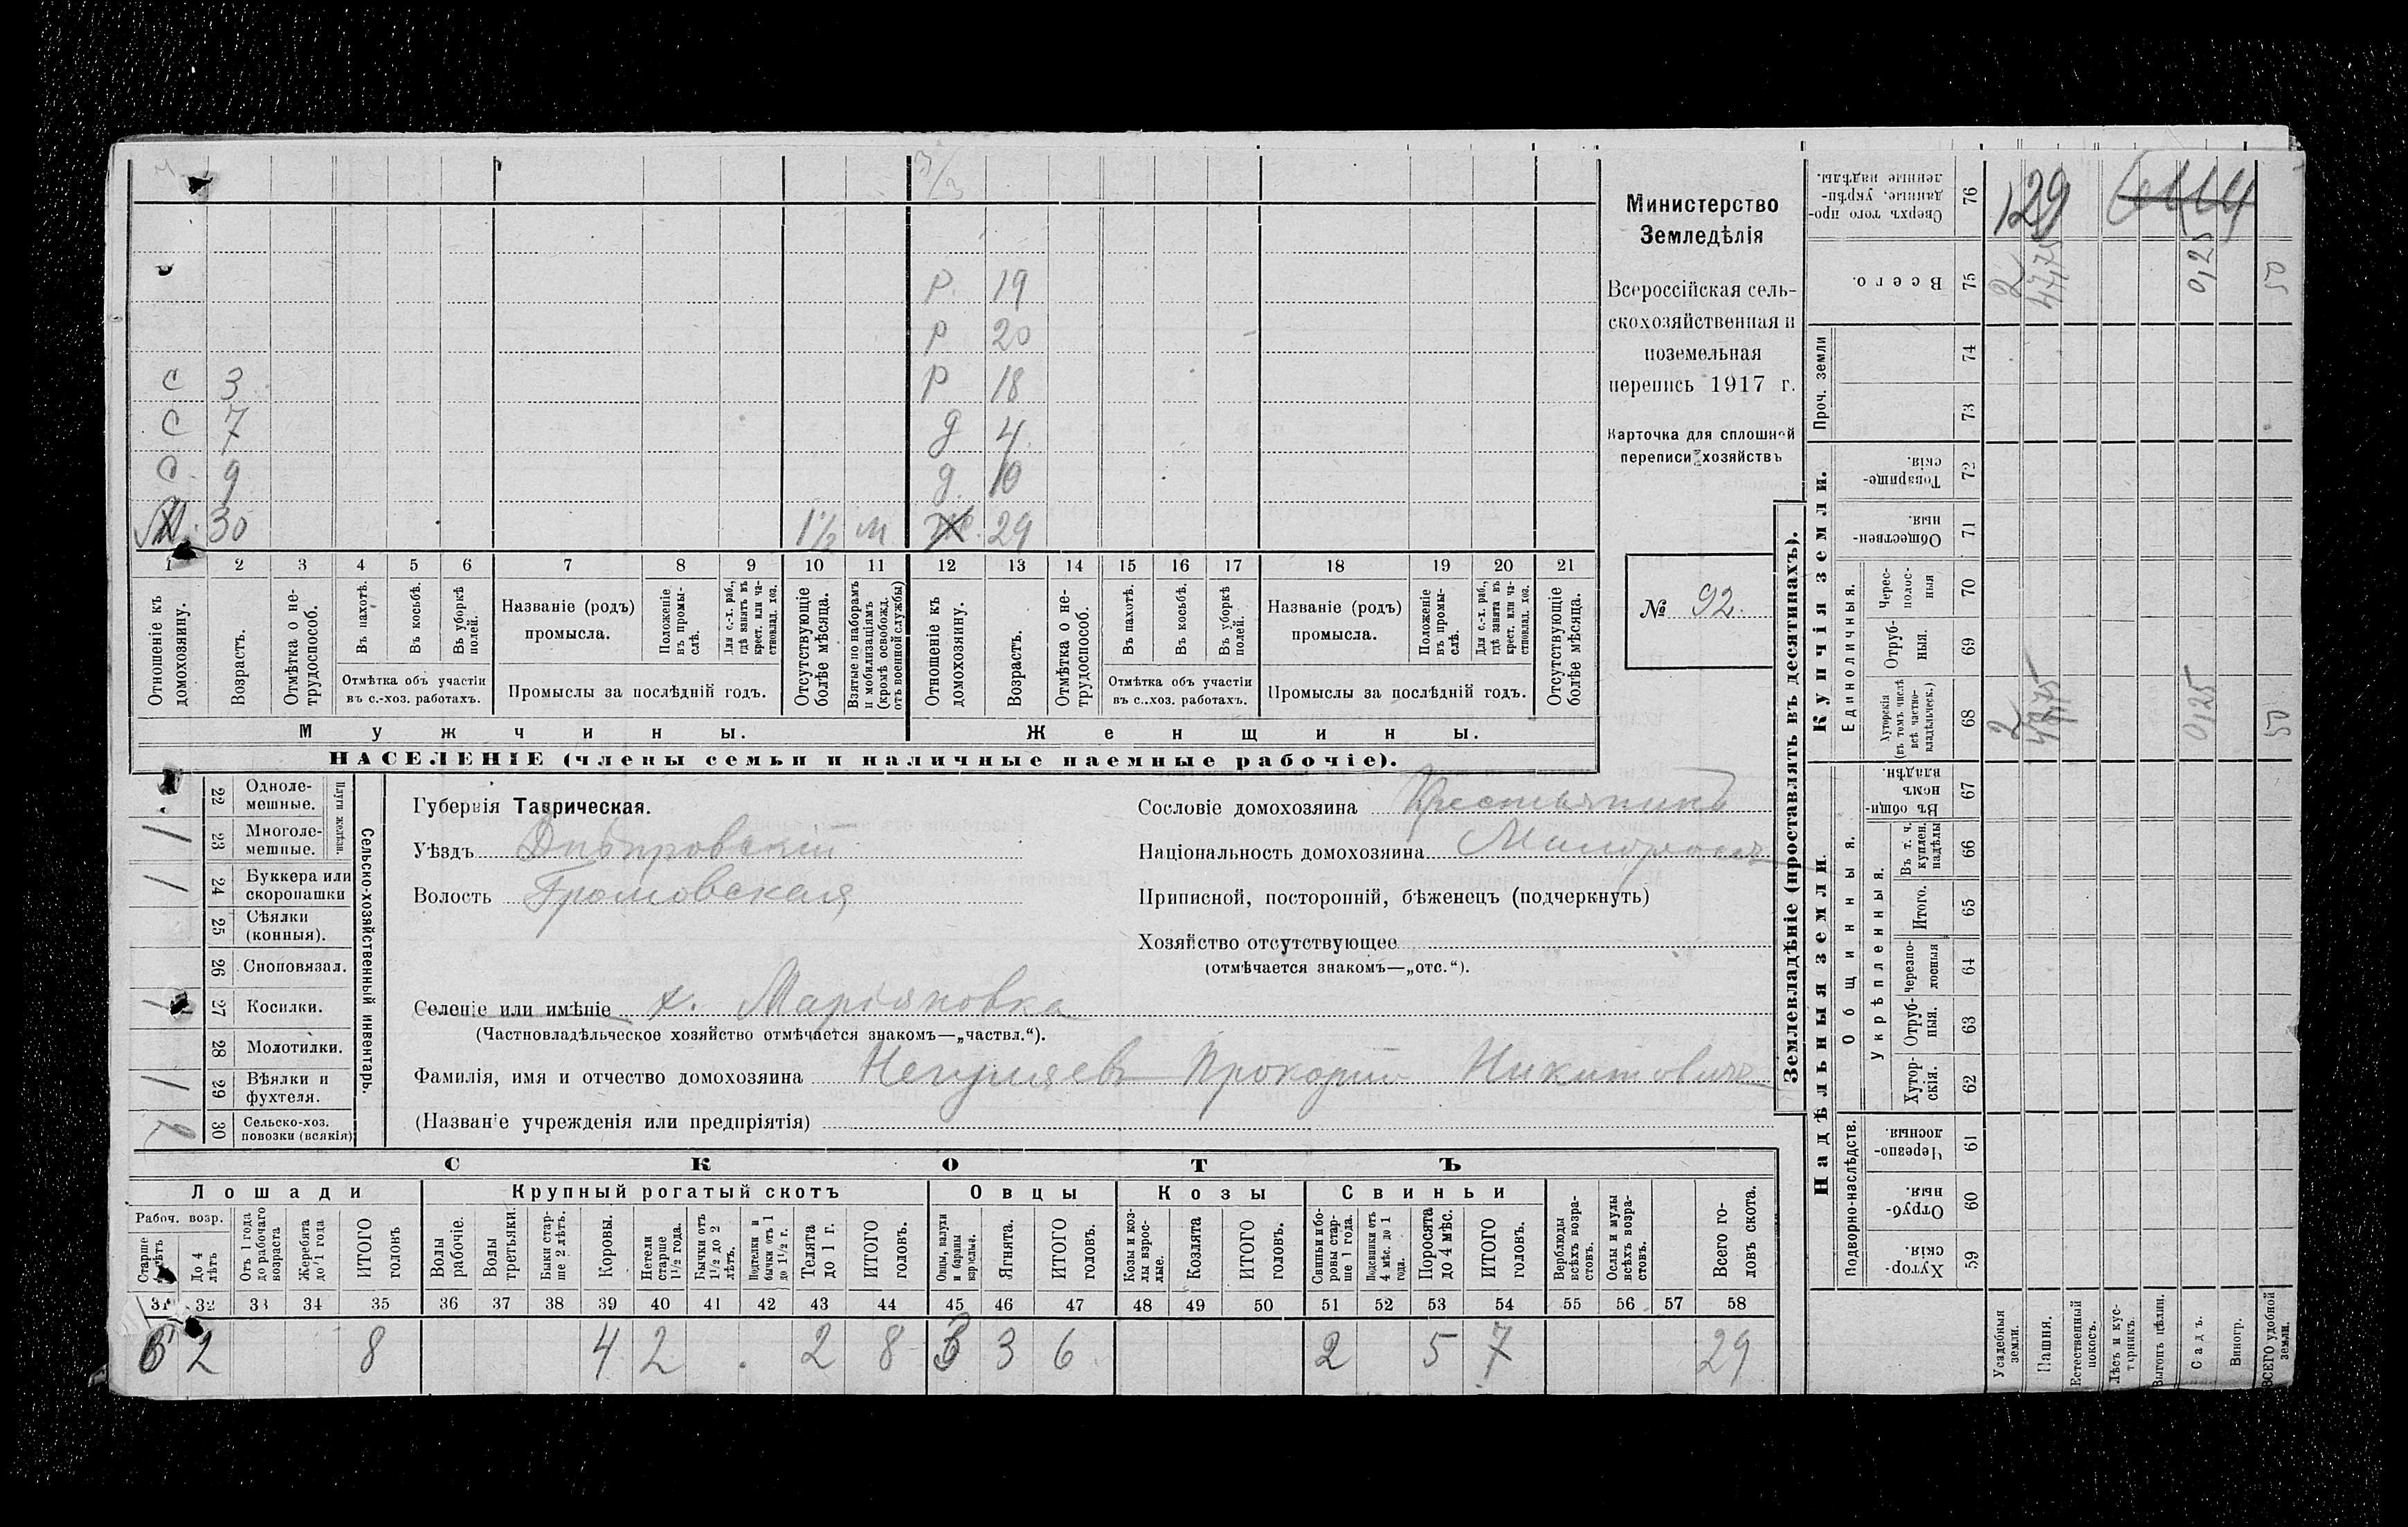 Министерство
Земледѣлія
Всероссійская сель-
скохозяйственная и
поземельная
перепись 1917 г.
Карточка для сплошной
переписи хозяйствъ
№ 92.
Р. 19
Р 20
С 3 Р 18
С 7 д 4
С. 9 д. 10
30 1½ м 29
1 2 3 4 5 6 7 8 9 10 11 12 13 14 15 16 17 18 19 20 21
Отношеніе къ домохозяину.
Возрастъ.
Отмѣтка о не-трудоспособ.
Въ пахотѣ.
Въ косьбѣ.
Въ уборкѣ полей.
Отмѣтка объ участіи въ с.-хоз. работахъ.
Названіе (родъ) промысла.
Положеніе въ промы-слѣ.
Для с.-х. раб., гдѣ занятъ въ крест. или ча-стновлад. хоз.
Промыслы за послѣдній годъ.
Отсутствующіе болѣе мѣсяца.
Взятые по наборамъ и мобилизаціямъ (кромѣ освобожд. отъ военной службы)
Отношеніе къ домохозяину.
Возрастъ.
Отмѣтка о не-трудоспособ.
Въ пахотѣ.
Въ косьбѣ.
Въ уборкѣ полей.
Отмѣтка объ участіи въ с..хоз. работахъ.
Названіе (родъ) промысла.
Положеніе въ промы-слѣ.
Для с.-х. раб., гдѣ занята въ крест. или ча-стновлад. хоз.
Промыслы за послѣдній годъ.
Отсутствующіе болѣе мѣсяца.
Мужчины. Женщины.
НАСЕЛЕНІЕ (члены семьи и наличные наемные рабочіе).
22 Одноле-мешные.
1 23 Многоле-мешные.
Плуги желѣзн.
1 24 Буккера или скоропашки
25 Сѣялки (конныя).
26 Сноповязал.
1 27 Косилки.
28 Молотилки.
1 29 Вѣялки и фухтеля.
30 Сельско-хоз. повозки (всякія)
Сельско-хозяйственный инвентарь.
Губернія Таврическая.
Уѣздъ Днѣпровскій
Волость Громовская
Сословіе домохозяина Крестьянинъ
Національность домохозяина Малороссъ
Приписной, посторонній, бѣженецъ (подчеркнуть)
Хозяйство отсутствующее
(отмѣчается знакомъ—„отс.“).
Селеніе или имѣніе х. Маріяновка
(Частновладѣльческое хозяйство отмѣчается знакомъ—„частвл.“).
Фамилія, имя и отчество домохозяина Прокофій Никитовичъ
(Названіе учрежденія или предпріятія)
СКОТЪ
Лошади Крупный рогатый скотъ Овцы Козы Свиньи
Рабоч. возр.
Старше 4 лѣтъ
До 4 лѣтъ
Отъ 1 года до рабочаго возраста
Жеребята до 1 года
ИТОГО головъ
Волы рабочіе.
Волы третьяки.
Быки стар-ше 2 лѣтъ.
Коровы.
Нетели старше 1½ года.
Бычки отъ 1½ до 2 лѣтъ.
Подтелки и бычки отъ 1 до 1½ г.
Телята до 1 г.
ИТОГО головъ.
Овцы, валухи и бараны взрослые.
Ягнята.
ИТОГО головъ.
Козы и коз-лы взрос-лые.
Козлята
ИТОГО головъ.
Свиньи и бо-ровы стар-ше 1 года.
Подсвинки отъ 4 мѣс. до 1 года.
Поросята до 4 мѣс.
ИТОГО головъ.
Верблюды всѣхъ возра-стовъ.
Ослы и мулы всѣхъ возра-стовъ.
Всего го-ловъ скота.
31 32 33 34 35 36 37 38 39 40 41 42 43 44 45 46 47 48 49 50 51 52 53 54 55 56 57 58
6 2 8 4 2 2 8 3 3 6 2 5 7 29
Землевладѣніе (проставлять въ десятинахъ).
Купчія земли.
Надѣльныя земли.
Сверхъ того про-данные, укрѣп-ленные надѣлы. 76
129
Всего. 75 2 47,75 0,25
Проч. земли 74 73
Товарище-скія. 72
Обществен-ныя. 71
Единоличныя.
Черес-полос-ныя 70
Отруб-ныя. 69
Хуторскія (въ томъ числѣ всѣ частно-владѣльческ.) 68 2 47,75 0,25
Въ общин-номъ владѣн. 67
Общинныя.
Укрѣпленныя.
Въ т. ч. куплен. надѣлы 66
Итого. 65
Черезпо-лосныя 64
Отруб-ныя. 63
Хутор-скія. 62
Подворно-наслѣдств.
Черезпо-лосныя. 61
Отруб-ныя. 60
Хутор-скія. 59
Усадебныя земли.
Пашня.
Естественный покосъ.
Лѣсъ и кус-тарникъ.
Выгонъ цѣлин.
Садъ.
Виногр.
ВСЕГО удобной земли.